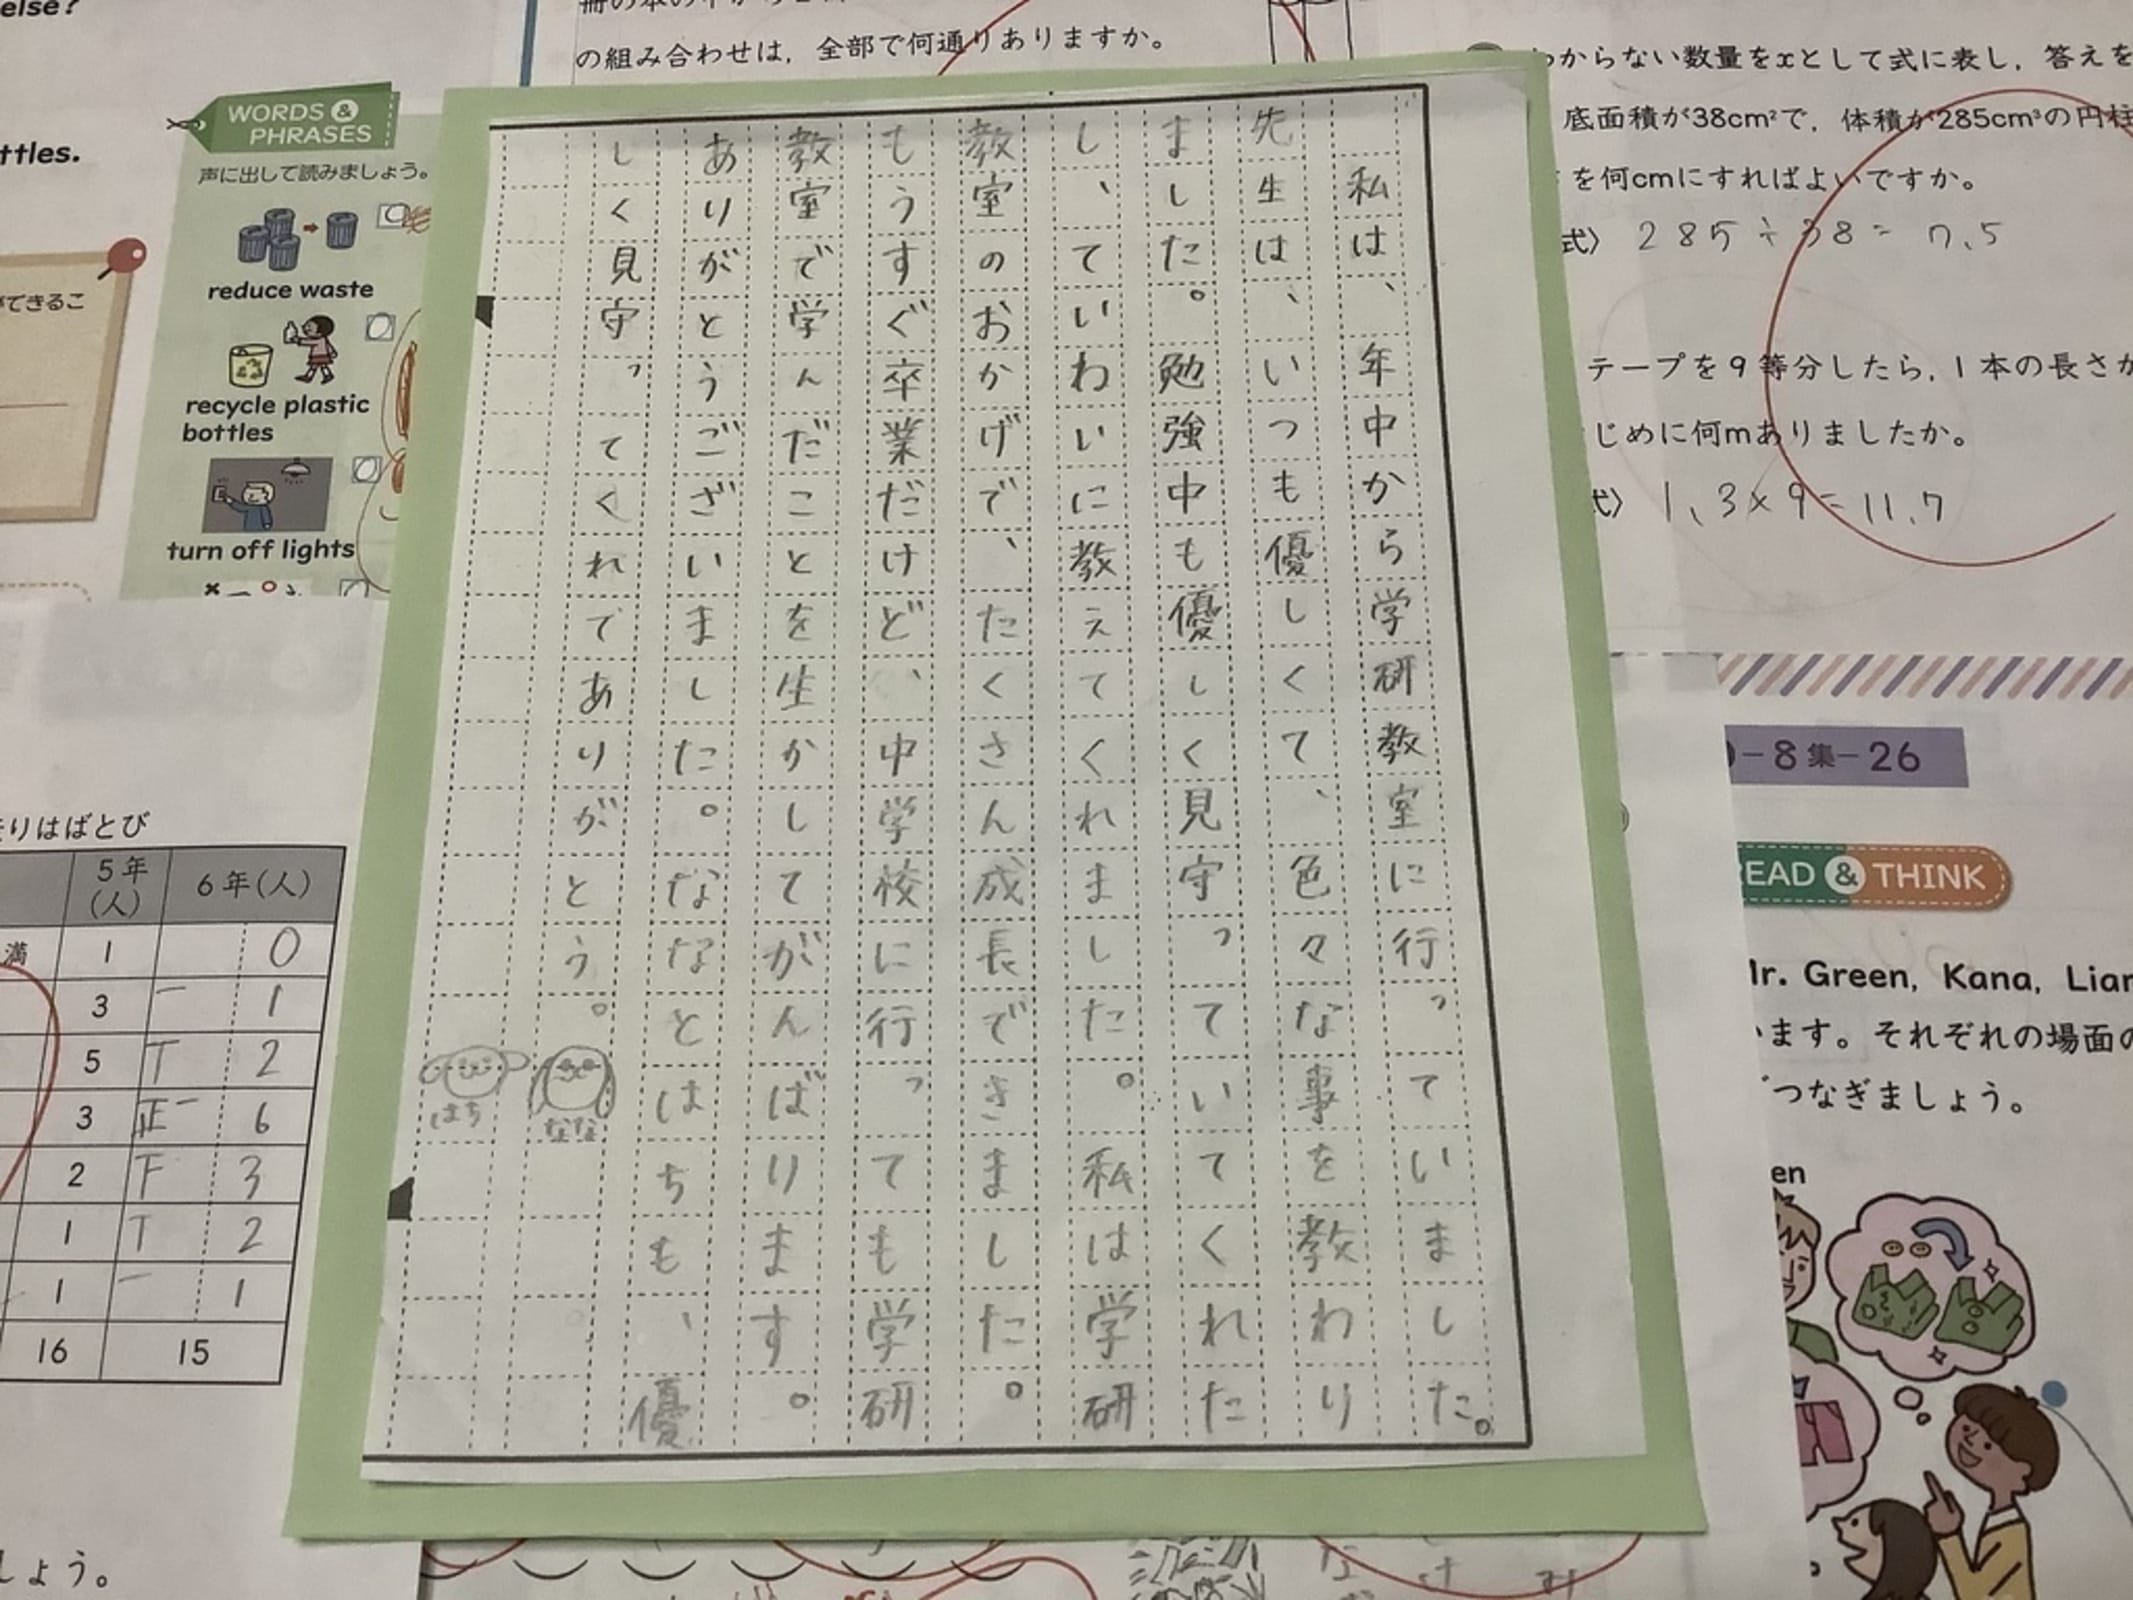 私は、年中から学研教室に行っていました。
先生は、いつも優しくて、色々な事を教わり
ました。勉強中も優しく見守っていてくれた
し、ていねいに教えてくれました。私は学研
教室のおかげで、たくさん成長できました。
もうすぐ卒業だけど、中学校に行っても学研
教室で学んだことを生かしてがんばります。
ありがとうございました。ななとはちも、優
しく見守ってくれてありがとう。
なな
はち
else?
ttles.
WORDS &
PHRASES
声に出して読みましょう。
reduce waste
recycle plastic
bottles
turn off lights
ができるこ
の組み合わせは，全部で何通りありますか。
わからない数量をxとして式に表し，答えを
底面積が38cm²で，体積が285cm³の円柱
を何cmにすればよいですか。
式〉 285÷38= 7.5
テープを9等分したら，1本の長さが
じめに何mありましたか。
式〉 1.3×9=11.7
-8集-26
READ & THINK
Mr. Green, Kana, Liam
います。それぞれの場面の
つなぎましょう。
en
走りはばとび
5年(人) 6年(人)
満 1 0
3 一 1
5 T 2
3 正一 6
2 下 3
1 T 2
1 一 1
16 15
しょう。